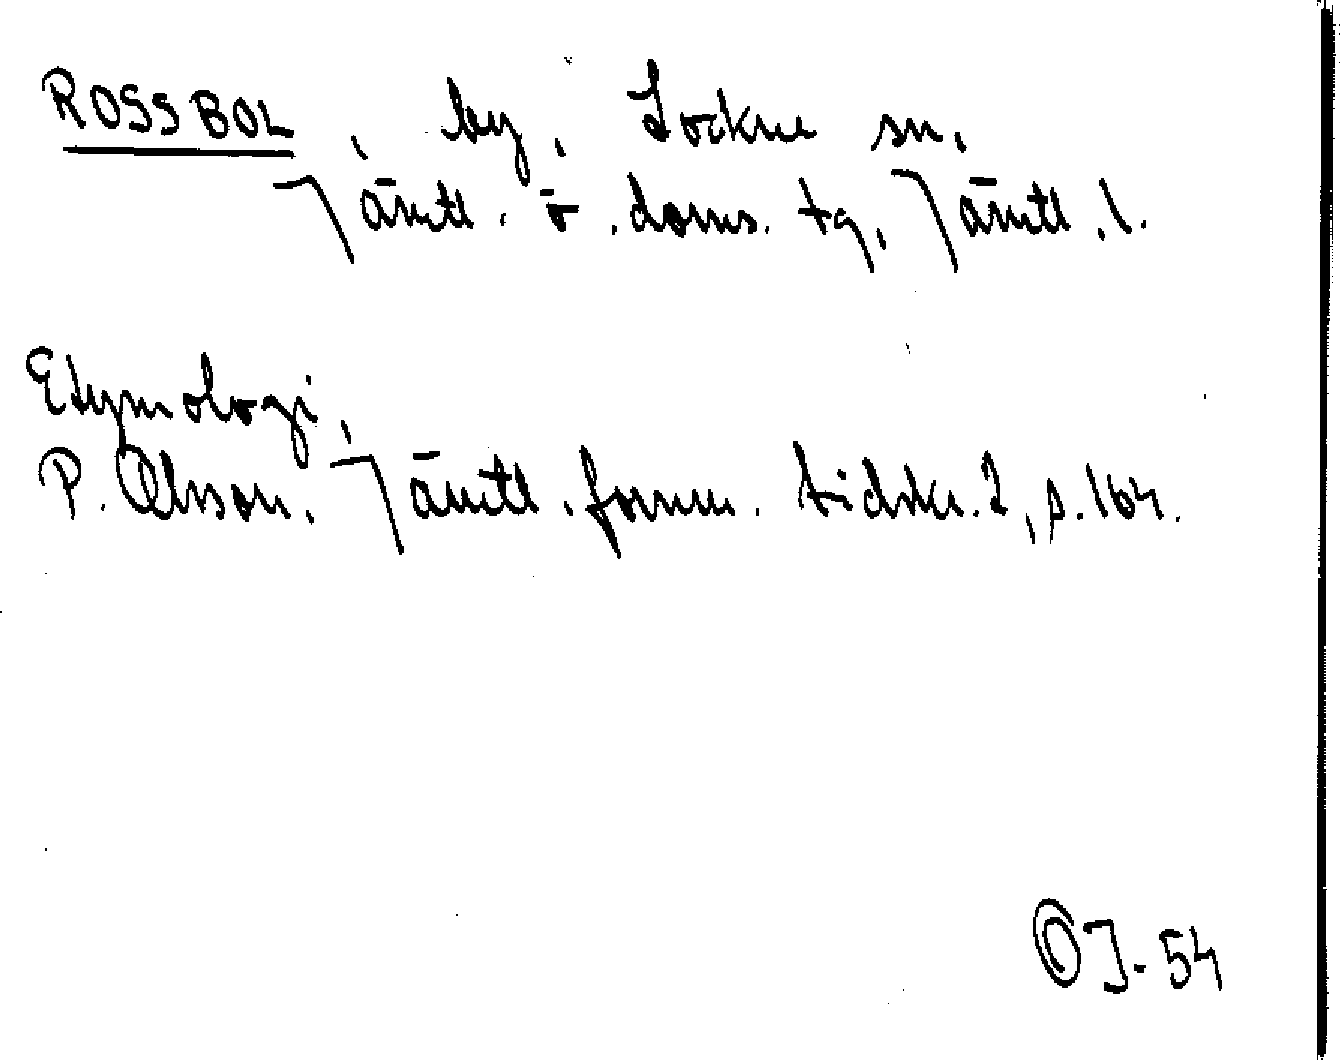 ROSSBOL, by, Lockne sn,
Jämtl. ö. doms. tg, Jämtl. l.
Etymologi,
P. Olsson. Jämtl. fornm. tidskr. 2, s. 164.
OJ-54